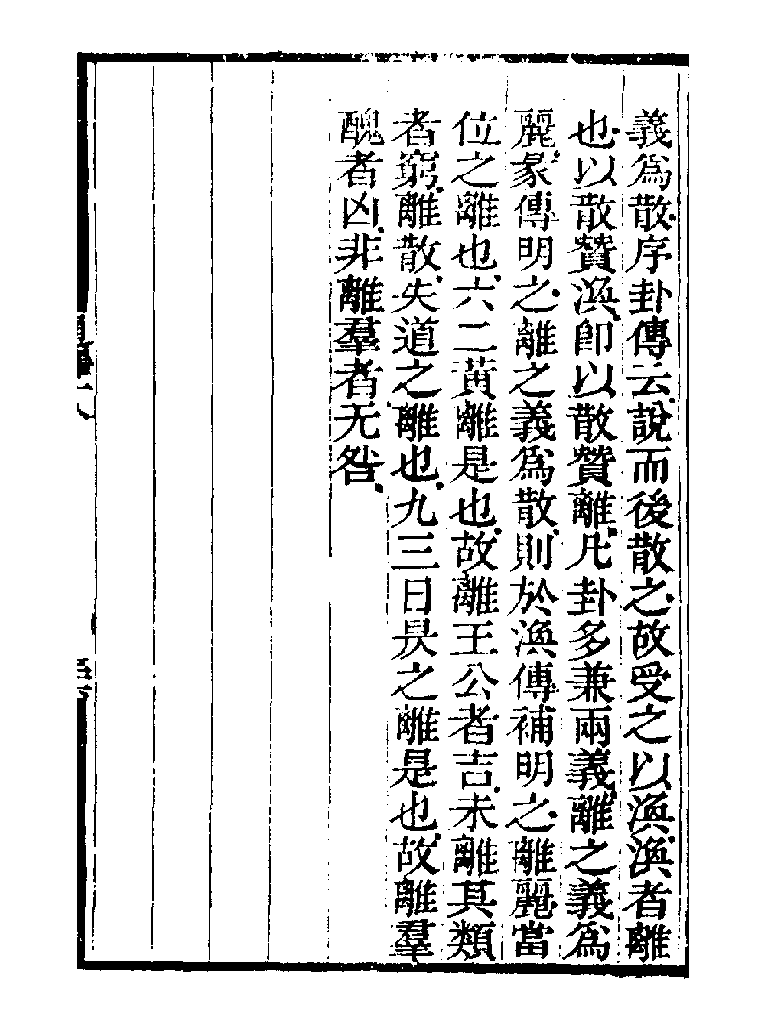 義爲散序卦傳云說而後散之故受之以渙渙者離
也以散贊渙卽以散贊離凡卦多兼兩義離之義爲
麗彖傳明之離之義爲散則於渙傳補明之離麗當
位之離也六二黃離是也故離王公者吉未離其類
者窮離散失道之離也九三日昃之離是也故離羣
醜者凶非離羣者无咎